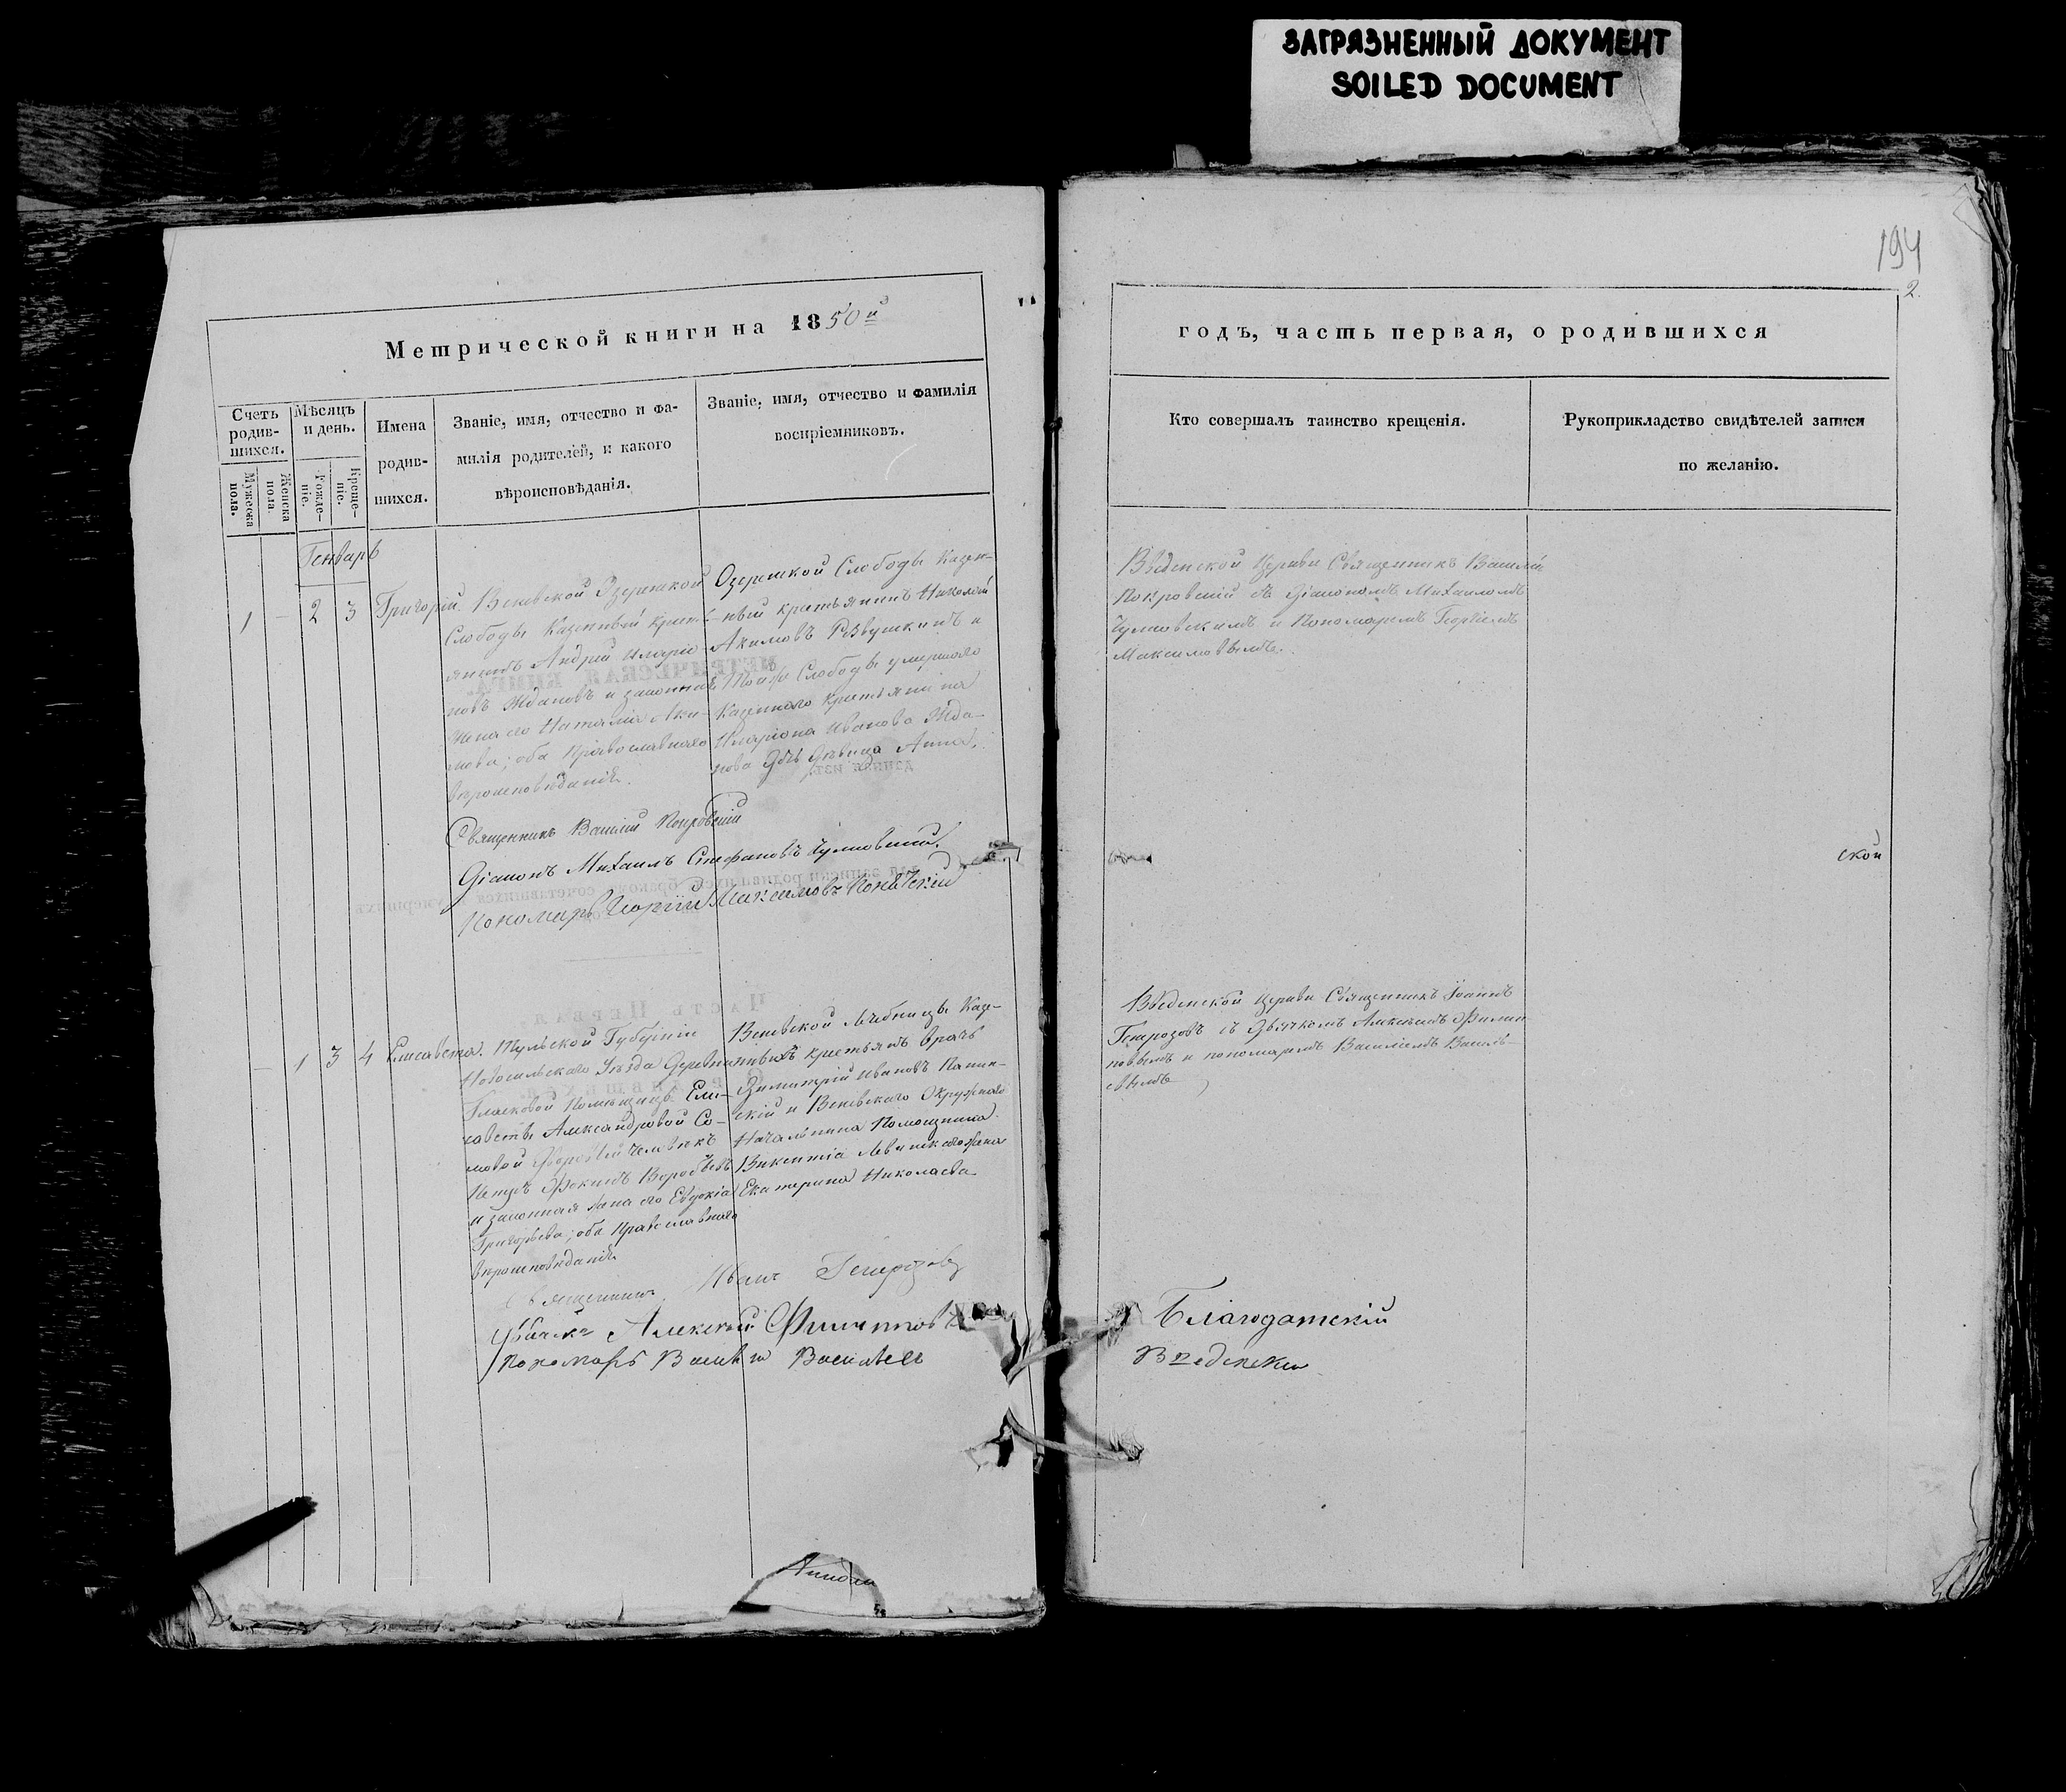 ЗАГРЯЗНЕННЫЙ ДОКУМЕНТ
SOILED DOCUMENT
194
2.
Метрической книги на 1850й
Счетъ родив-шихся.
Мужеска пола.
Женска пола.
Мѣсяцъ и день.
Рожде-ніе.
Креще-ніе.
Имена
родив-
шихся.
Званіе, имя, отчество и фа-
милія родителей, и какого
вѣроисповѣданія.
Званіе, имя, отчество и фамилія
воспріемниковъ.
Генварь
1 - 2 3 Григорій.
Веневской Озерской
Слободы казенный крест-
янинъ Андрей Иларіо-
новъ Ждановъ и законная
жена его Наталія Аки-
мова; оба православнаго
вѣроисповѣданія.
Озерской Слободы казен-
ный крестьянинъ Николай
Акимовъ и
той же Слободы умершаго
казеннаго крестьянина
Иларіона Иванова Жда-
нова дѣвица Анна.
Священникъ Василій Покровскій
Діаконъ Михаилъ Стефановъ
Пономарь Георгій Максимовъ
- 1 3 4 Елисавета.
Тульской Губерніи
Новосильскаго Уѣзда деревни
помѣщицы Ели-
саветы Александровой Со-
мовой дворовый человѣкъ
Петръ Фокинъ Воробьевъ
и законная жена его Евдокія
Григорьева; оба православнаго
вѣроисповѣданія.
Веневской лѣчебницы каз-
енныхъ крестьянъ врачъ
Димитрій Ивановъ
и Веневскаго Окружнаго
Начальника Помощника
Викентія жена
Екатерина Николаева
Священникъ Иванъ
Дьячекъ Алексей Филиповъ
Пономарь Василій Васильевъ
годъ, часть первая, о родившихся
Кто совершалъ таинство крещенія.
Рукоприкладство свидѣтелей записи
по желанію.
Введенской Церкви Священникъ Василій
Покровскій съ Діакономъ Михаиломъ
и Пономаремъ Георгіемъ
Максимовымъ.
ской
Введенской Церкви Священникъ Іоаннъ
съ Дьячкомъ Алексѣемъ Филип-
повымъ и пономаремъ Василіемъ Василь-
евымъ
Благодатскій